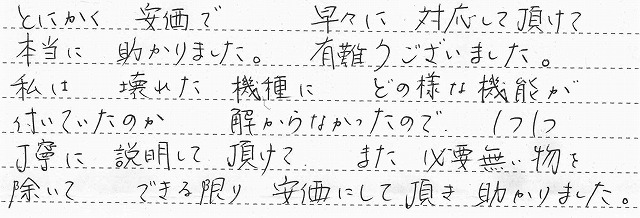 とにかく 安価で 早々に 対応して頂けて
本当に 助かりました。 有難うございました。
私は 壊れた 機種に どの様な機能が
付いていたのか 解からなかったので 1つ1つ
丁寧に 説明して 頂けて また 必要無い物を
除いて できる限り 安価にして頂き 助かりました。